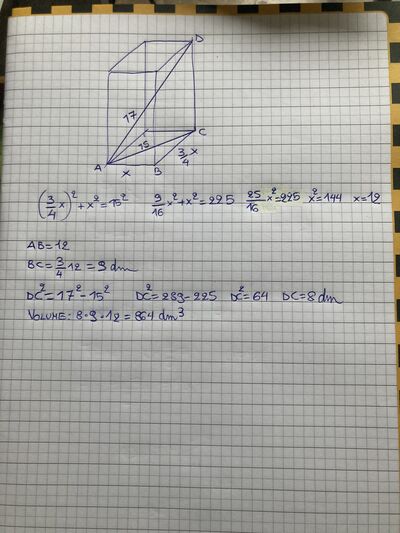 D
17
15
C
A
x
B
3/4 x
(3/4 x)² + x² = 15² 9/16 x² + x² = 225 25/16 x² = 225 x² = 144 x = 12
AB = 12
BC = 3/4 12 = 9 dm
DC² = 17² - 15² DC² = 289 - 225 DC² = 64 DC = 8 dm
VOLUME: 8 · 9 · 12 = 864 dm³